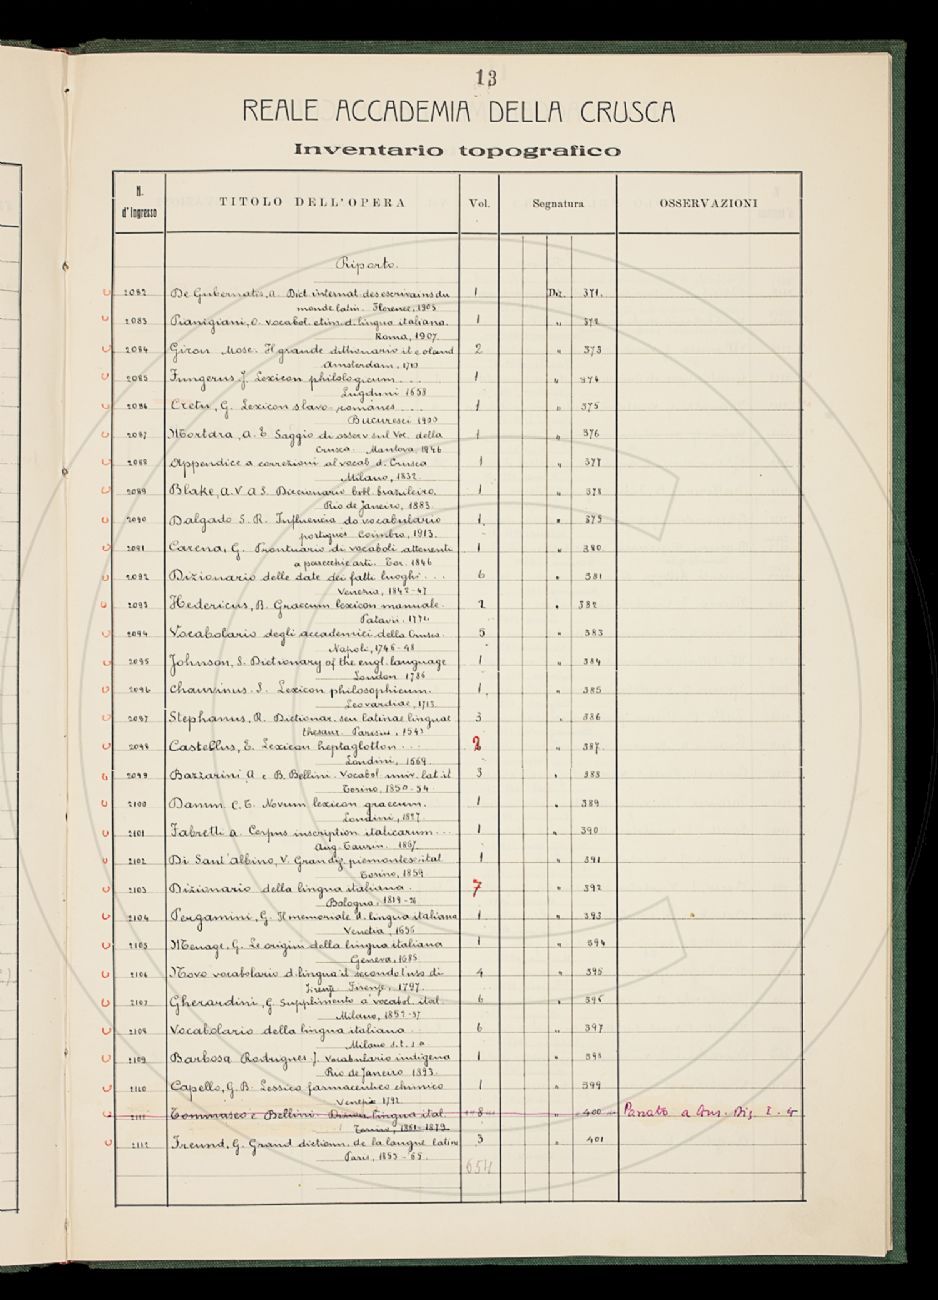 13
REALE ACCADEMIA DELLA CRUSCA
Inventario topografico
N. d'Ingresso TITOLO DELL'OPERA Vol. Segnatura OSSERVAZIONI
Riporto.
2082 De Gubernatis, A. Dict. internat. des escrivains du 1 Diz. 371.
monde latin. Florence, 1905
2083 Pianigiani, O. Vocabol. etim. d. lingua italiana. 1 " 372
Roma, 1907.
2084 Giron Mosè. Il grande dittionario it. e oland 2 " 373
Amsterdam, 1710
2085 Fungerus, J. Lexicon philologicum . . . 1 " 374
Lugduni 1658
2086 Cretu, G. Lexicon slavo-romanes . . . . 1 " 375
Bucuresci 1900
2087 Mortara, A. E. Saggio di osserv. sul Voc. della 1 " 376
Crusca. Mantova, 1846
2088 Appendice a correzioni al vocab. d. Crusca 1 " 377
Milano, 1832.
2089 Blake, A. V. A. S. Diccionario bibl. brazileiro. 1 " 378
Rio de Janeiro, 1883.
2090 Dalgado S. R. Influencia do vocabulario 1. " 379
portugues Coimbra, 1913.
2091 Carena, G. Prontuario di vocaboli attenenti 1 " 380
a parecchie arti. Tor. 1846
2092 Dizionario delle date dei fatti luoghi . . . 6 " 381
Venezia, 1842-47
2093 Hedericus, B. Graecum lexicon manuale. 2 " 382
Patavii, 1774
2094 Vocabolario degli accademici della Crusca. 5 " 383
Napoli, 1746-48
2095 Johnson, S. Dictionary of the engl. language 1 " 384
London 1786
2096 Chauvinus. S. Lexicon philosophicum. 1. " 385
Leovardiae, 1713.
2097 Stephanus, R. Dictionar. seu latinae linguae 3 " 386
thesaur. Parisiis, 1543
2098 Castellus, E. Lexicon heptaglotton . . . 2 " 387.
Londini, 1669.
2099 Bazzarini A. e B. Bellini. Vocabol. univ. lat. it 3 " 388
Torino, 1850-54.
2100 Damm. C. T. Novum lexicon graecum. 1 " 389
Londini, 1827.
2101 Fabretti A. Corpus inscription. italicarum . . . 1 " 390
Aug. Taurin. 1867
2102 Di Sant'Albino, V. Gran diz. piemontes-ital 1 " 391
Torino, 1859
2103 Dizionario della lingua italiana. 7 " 392
Bologna, 1819-26
2104 Pergamini, G. Il memoriale d. lingua italiana 1 " 393
Venetia, 1656
2105 Menage, G. Le origini della lingua italiana 1 " 394
Geneva, 1685
2106 Novo vocabolario d. lingua it. secondo l'uso di 4 " 395
Firenze. Firenze, 1797.
2107 Gherardini, G. Supplimento a' vocabol. ital 6 " 396
Milano, 1852-57
2108 Vocabolario della lingua italiana . . 6 " 397
Milano s.t. s.a
2109 Barbosa Rodrigues. J. Vocabulario indigena 1 " 398
Rio de Janeiro 1893.
2110 Capello, G. B. Lessico farmaceutico chimico 1 " 399
Venezia 1792
2111 Tommaseo e Bellini. lingua ital. 8 " 400 Passato a Cons. Diz. I. 4
Torino, 1861-1879
2112 Freund, G. Grand diction. de la langue latine 3 " 401
Paris, 1855-65.
654